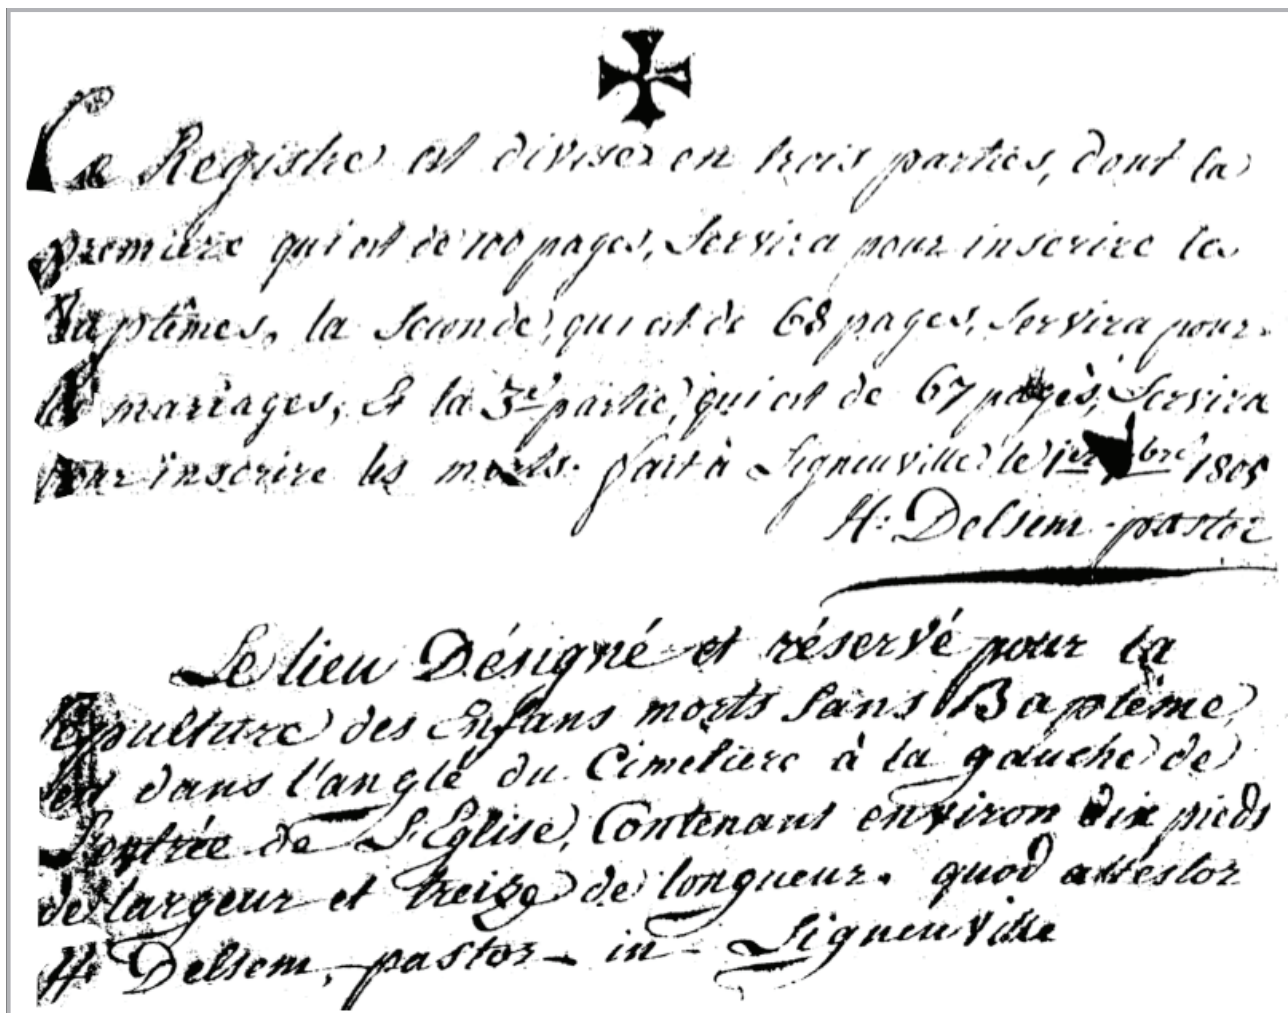 Ce Registre est divisé en trois parties, dont la
premiere qui est de 100 pages, Servira pour inscrire les
Baptêmes, la Seconde, qui est de 68 pages, Servira pour
les mariages, Et la 3e partie, qui est de 67 pages, Servira
pour inscrire les morts. fait à Ligneuville le 1er bre 1805
H: Delsem pastor
Le lieu Désigné et réservé pour la
Sépulture des Enfans morts Sans Baptême,
est dans l'angle du Cimetiere à la gauche de
L'entrée de L'Eglise, Contenant environ dix pieds
de largeur et treize de longueur. quod attestor
H: Delsem, pastor in Ligneuville